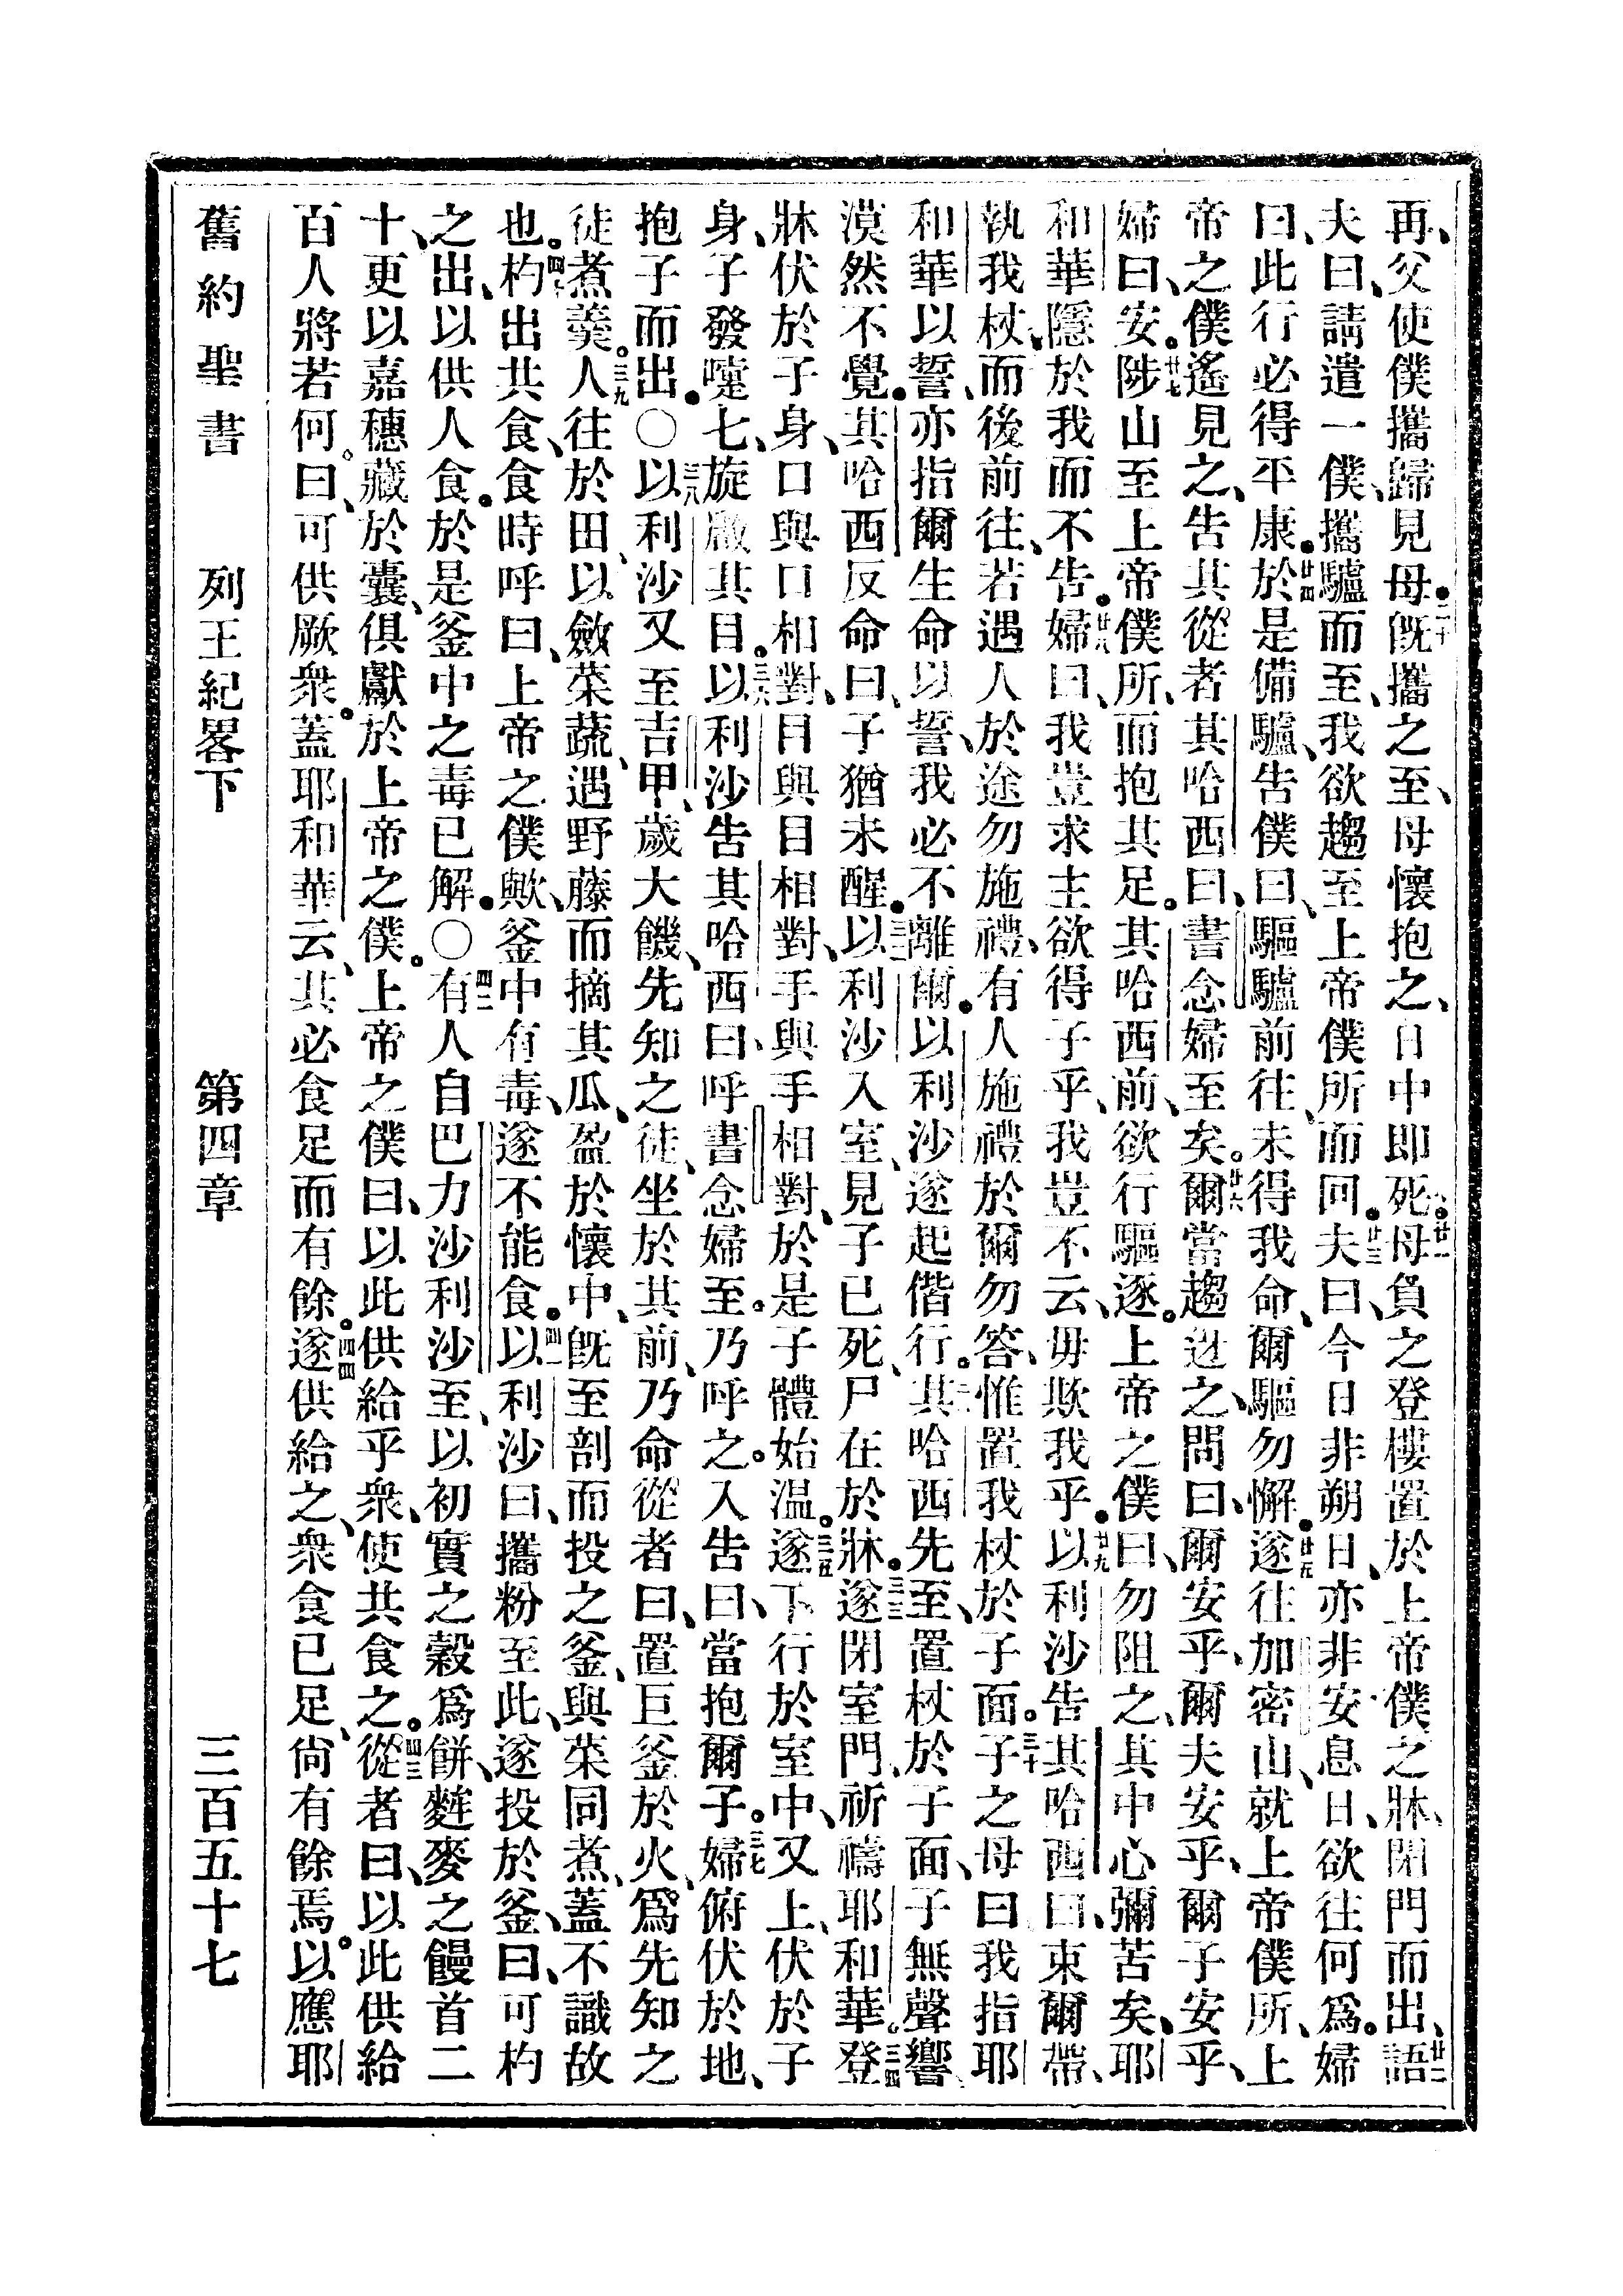 再、父使僕攜歸見母。二十既攜之至、母懷抱之、日中即死。廿一母負之登樓置於上帝僕之牀、閉門而出、廿二語
夫曰、請遣一僕、攜驢而至、我欲趨至上帝僕所、而回。廿三夫曰、今日非朔日、亦非安息日、欲往何爲。婦
曰、此行必得平康。廿四於是備驢、告僕曰、驅驢前往、未得我命、爾驅勿懈。廿五遂往加密山、就上帝僕所、上
帝之僕遙見之、告其從者其哈西曰、書念婦至矣。廿六爾當趨迓之、問曰、爾安乎、爾夫安乎、爾子安乎、
婦曰、安。廿七陟山至上帝僕所、而抱其足。其哈西前、欲行驅逐。上帝之僕曰、勿阻之、其中心彌苦矣、耶
和華隱於我而不告。廿八婦曰、我豈求主欲得子乎、我豈不云、毋欺我乎。廿九以利沙告其哈西曰、束爾帶、
執我杖、而後前往、若遇人於途勿施禮、有人施禮於爾勿答、惟置我杖於子面。三十子之母曰、我指耶
和華以誓、亦指爾生命以誓、我必不離爾。以利沙遂起偕行。三一其哈西先至、置杖於子面、子無聲響、
漠然不覺。其哈西反命曰、子猶未醒。三二以利沙入室、見子已死、尸在於牀。三三遂閉室門、祈禱耶和華。三四登
牀伏於子身、口與口相對、目與目相對、手與手相對、於是子體始温。三五遂下行於室中、又上、伏於子
身、子發嚏七、旋啟其目。三六以利沙告其哈西曰、呼書念婦至。乃呼之。入告曰、當抱爾子。三七婦俯伏於地、
抱子而出。○三八以利沙又至吉甲、歲大饑、先知之徒、坐於其前、乃命從者曰、置巨釜於火、爲先知之
徒煮羹。三九人往於田、以斂菜蔬、遇野藤而摘其瓜、盈於懷中、既至剖而投之釜、與菜同煮、蓋不識故
也。四十杓出共食、食時呼曰、上帝之僕歟、釜中有毒、遂不能食。四一以利沙曰、攜粉至此、遂投於釜、曰、可杓
之出、以供人食。於是釜中之毒已解。○四二有人自巴力沙利沙至、以初實之穀爲餅、麰麥之饅首二
十、更以嘉穗藏於囊、俱獻於上帝之僕。上帝之僕曰、以此供給乎衆、使共食之。四三從者曰、以此供給
百人將若何。曰、可供厥衆。蓋耶和華云、其必食足而有餘。四四遂供給之、衆食已足、尚有餘焉。以應耶
舊約聖書　列王紀畧下　第四章　三百五十七